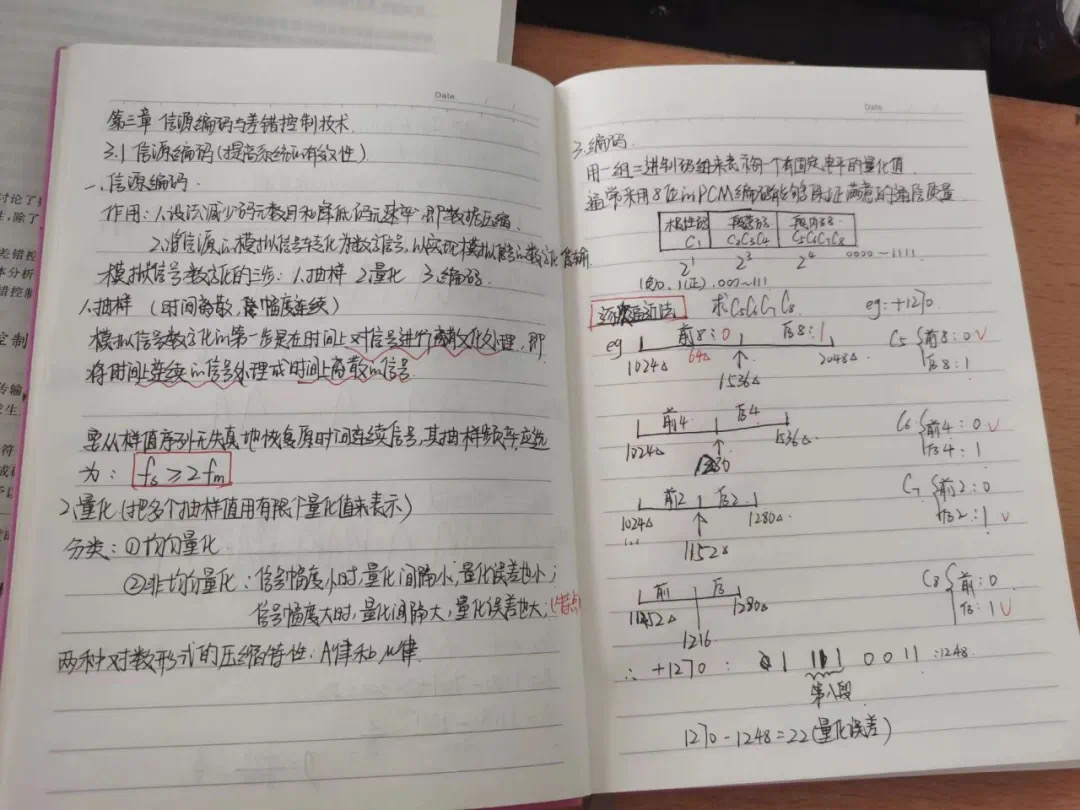 Date
第三章 信源编码与差错控制技术.
3.1 信源编码(提高系统的有效性)
一.信源编码.
作用: 1.设法减少码元数目和降低码元速率.即数据压缩.
2.将信源的模拟信号转化为数字信号,以实现模拟信号的数字化传输.
模拟信号数字化的三步: 1.抽样 2.量化 3.编码.
1.抽样 (时间离散, 幅度连续)
模拟信号数字化的第一步是在时间上对信号进行离散化处理,即
将时间上连续的信号处理成时间上离散的信号
要从样值序列无失真地恢复原时间连续信号,其抽样频率应选
为: fs ≥ 2fm
2.量化 (把多个抽样值用有限个量化值来表示)
分类: ①均匀量化
②非均匀量化: 信号幅度小时,量化间隔小,量化误差也小;
信号幅度大时,量化间隔大,量化误差也大;(特点)
两种对数形式的压缩特性: A律和μ律.
Date
3.编码.
用一组二进制码组来表示每一个有固定电平的量化值
通常采用8位的PCM编码能够保证满意的通信质量
极性码 段落码 段内码
C1 C2C3C4 C5C6C7C8
2¹ 2³ 2⁴ 0000~1111
(负)0, 1(正) 000~111
逐次逼近法 求C5C6C7C8 eg: +1270
eg 前8:0 后8:1 C5 {前8:0 √
1024Δ 64Δ 1536Δ 2048Δ 后8:1
前4 后4 C6 {前4:0 √
1024Δ 1280 1536Δ 后4:1
前2 后2 C7 {前2:0
1024Δ 1152Δ 1280Δ 后2:1 √
前 后 C8 {前:0
1152Δ 1280Δ 后:1 √
1216
∴ +1270: 1 111 0011 :1248
第八段
1270-1248=22(量化误差)